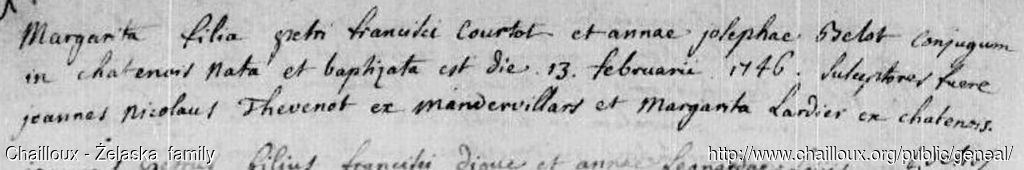 Margarita filia petri francisci Courtot et annae josephae Belot conjugum
in chatenois nata et baptizata est die 13. februarii 1746. Susceptores fuere
joannes nicolaus Thevenot ex mandervillars et Margarita Lardier ex chatenois.
Chailloux - Żelaska family
http://www.chailloux.org/public/geneal/
filius francisci et annae